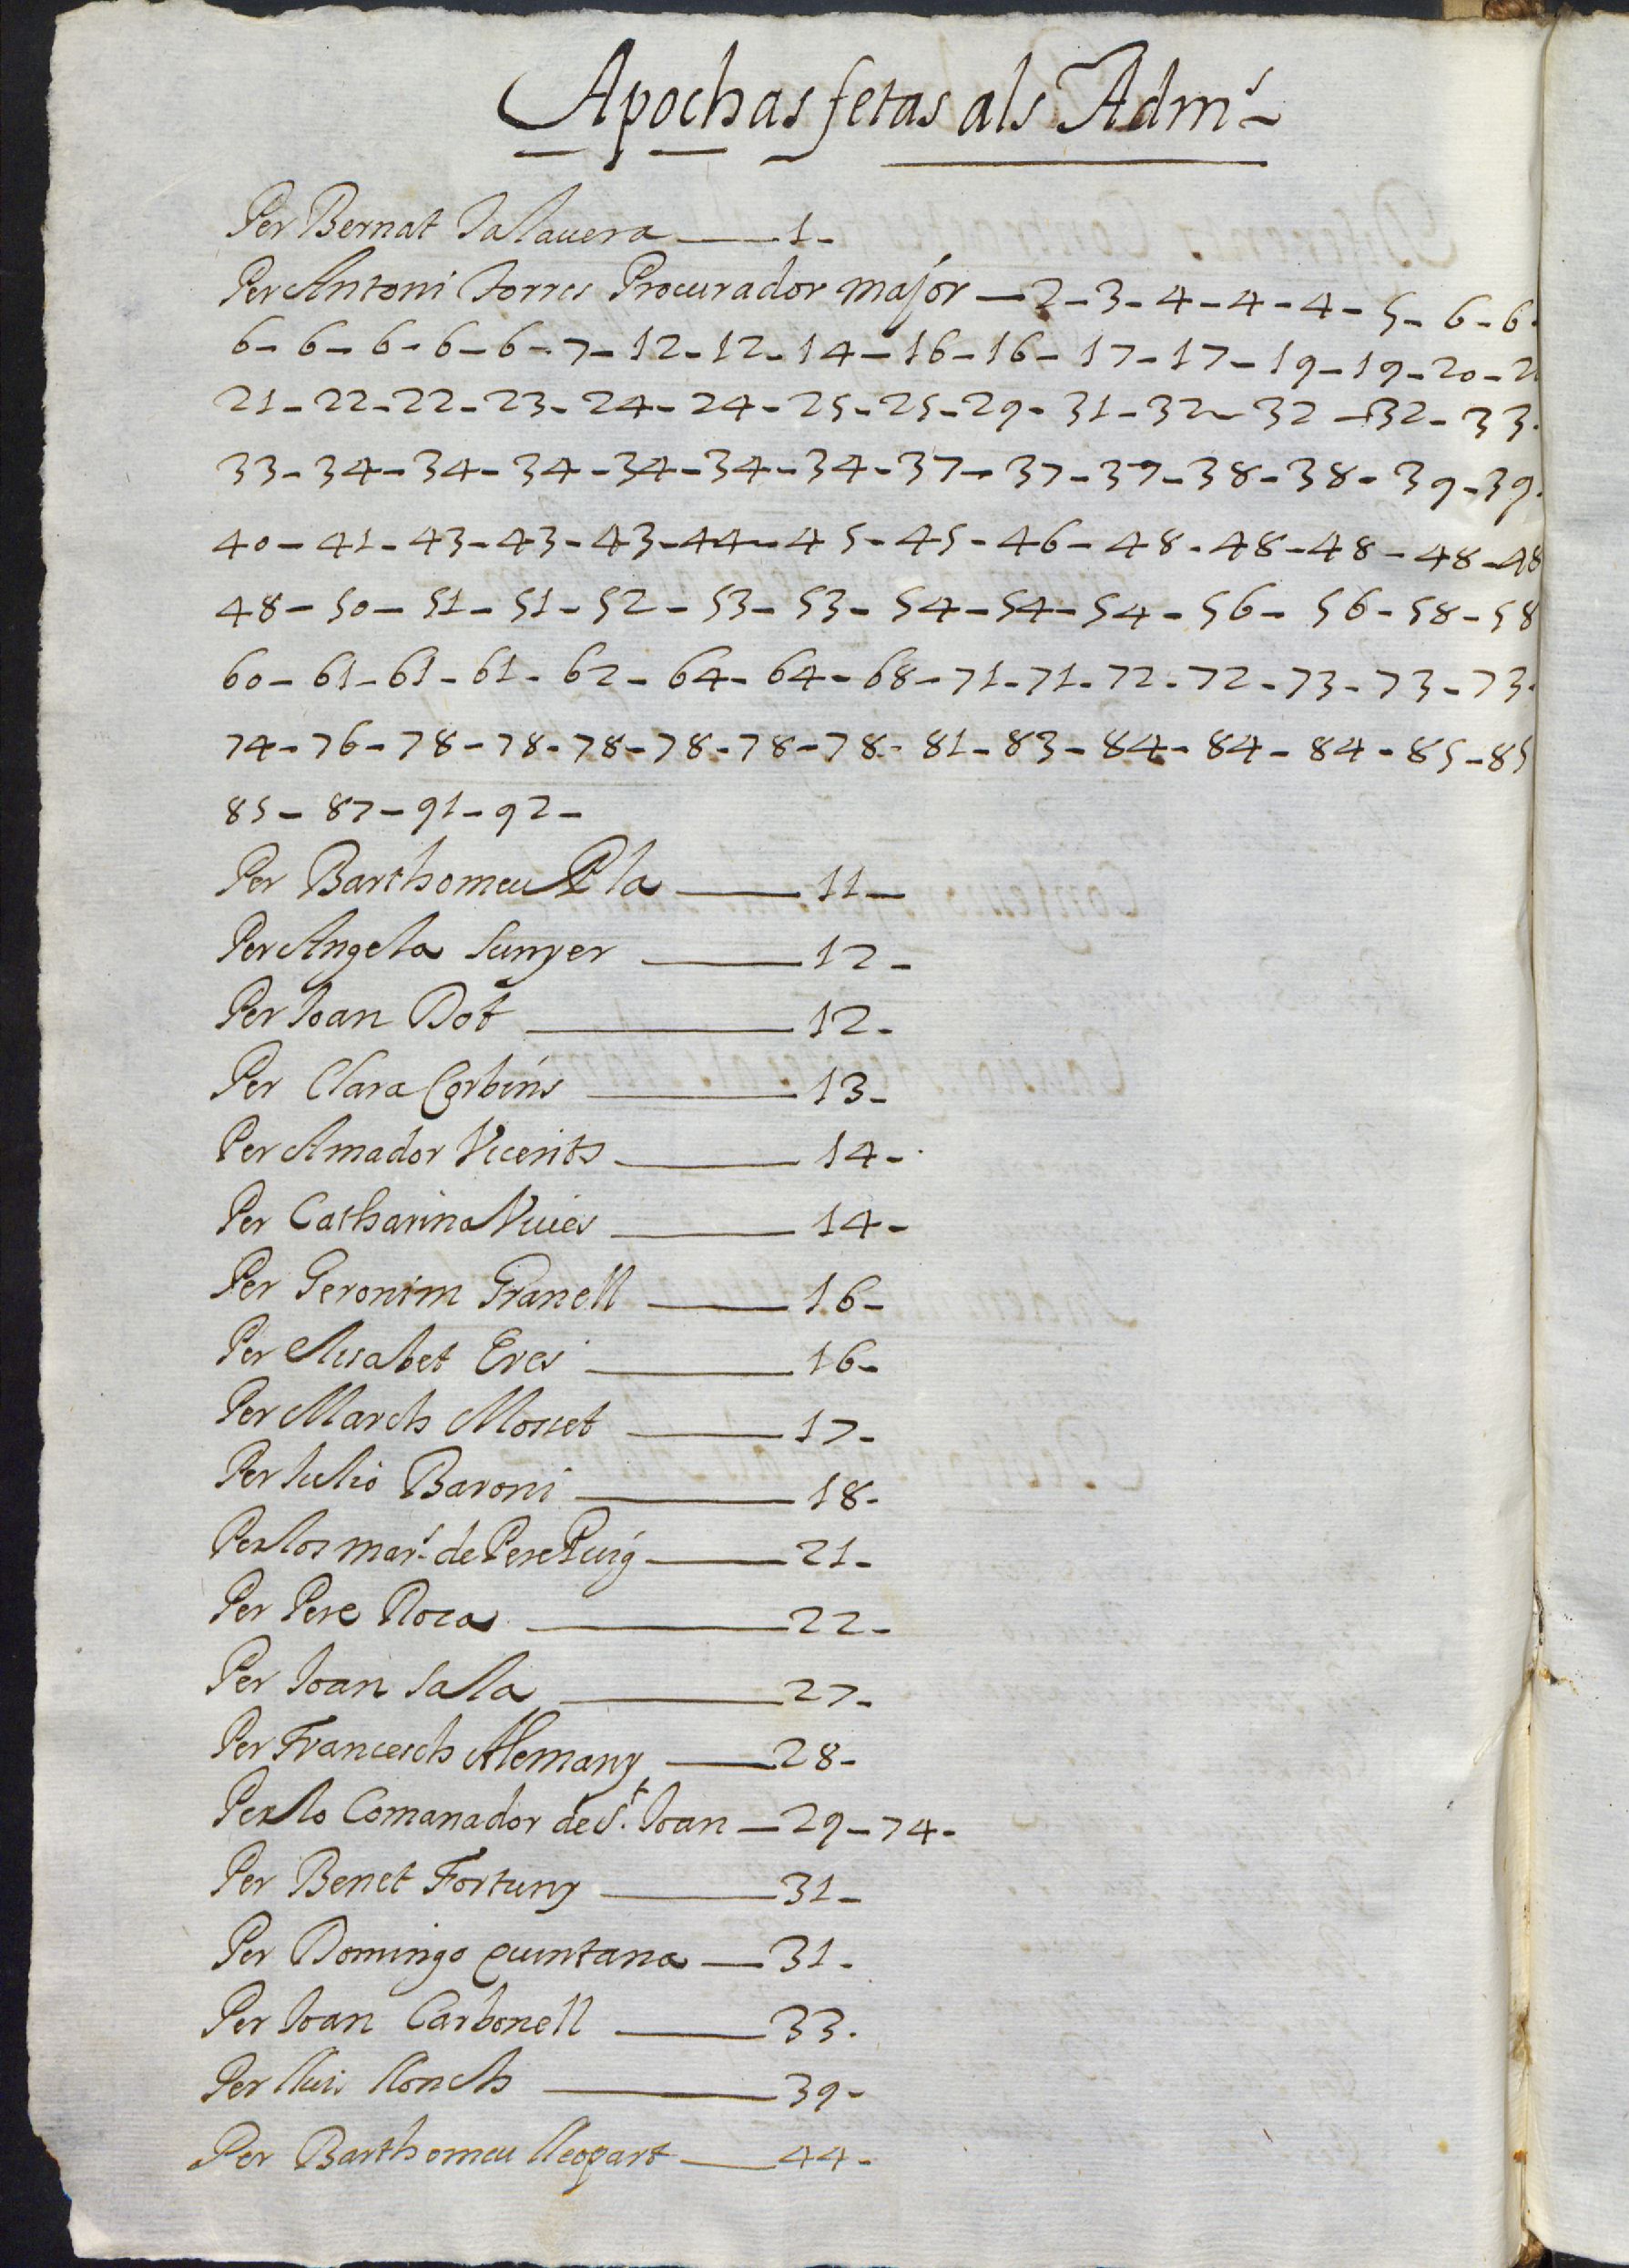 Apochas fetas als Adm.s
Per Bernat Talauera — 1 -
Per Antoni Torres Procurador major — 2 - 3 - 4 - 4 - 4 - 5 - 6 - 6 -
6 - 6 - 6 - 6 - 6 - 7 - 12 - 12 - 14 - 16 - 16 - 17 - 17 - 19 - 19 - 20 -
21 - 22 - 22 - 23 - 24 - 24 - 25 - 25 - 29 - 31 - 32 - 32 - 32 - 33 -
33 - 34 - 34 - 34 - 34 - 34 - 34 - 37 - 37 - 37 - 38 - 38 - 39 - 39 -
40 - 41 - 43 - 43 - 43 - 44 - 45 - 45 - 46 - 48 - 48 - 48 - 48 - 48
48 - 50 - 51 - 51 - 52 - 53 - 53 - 54 - 54 - 54 - 56 - 56 - 58 - 58
60 - 61 - 61 - 61 - 62 - 64 - 64 - 68 - 71 - 71 - 72 - 72 - 73 - 73 - 73 -
74 - 76 - 78 - 78 - 78 - 78 - 78 - 78 - 81 - 83 - 84 - 84 - 84 - 85 - 85
85 - 87 - 91 - 92 -
Per Barthomeu Pla — 11 -
Per Angela Sunyer — 12 -
Per Joan Dot — 12 -
Per Clara Corbins — 13 -
Per Amador Vicents — 14 -
Per Catharina Viues — 14 -
Per Geronim Granell — 16 -
Per Elisabet Eres — 16 -
Per March Mosset — 17 -
Per Julio Baroni — 18 -
Per los mar.s de Pere Puig — 21 -
Per Pere Roca — 22 -
Per Joan Sala — 27 -
Per Francesch Alemany — 28 -
Per lo Comanador de S.t Joan — 29 - 74 -
Per Benet Fortuny — 31 -
Per Domingo Quintana — 31 -
Per Joan Carbonell — 33.
Per lluis llonch — 39 -
Per Barthomeu lleopart — 44 -